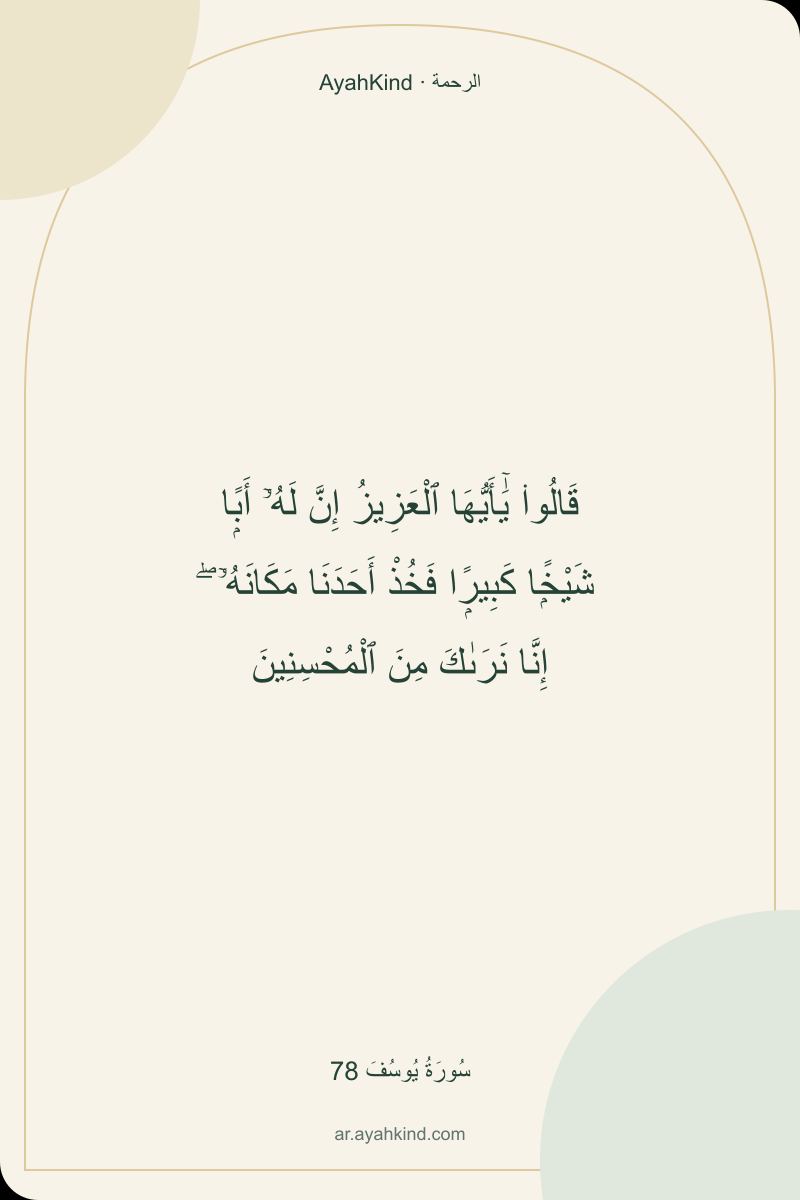 AyahKind · الرحمة
قَالُوا۟ يَٰٓأَيُّهَا ٱلْعَزِيزُ إِنَّ لَهُۥٓ أَبًۭا
شَيْخًۭا كَبِيرًۭا فَخُذْ أَحَدَنَا مَكَانَهُۥٓ ۖ
إِنَّا نَرَىٰكَ مِنَ ٱلْمُحْسِنِينَ
سُورَةُ يُوسُفَ 78
ar.ayahkind.com